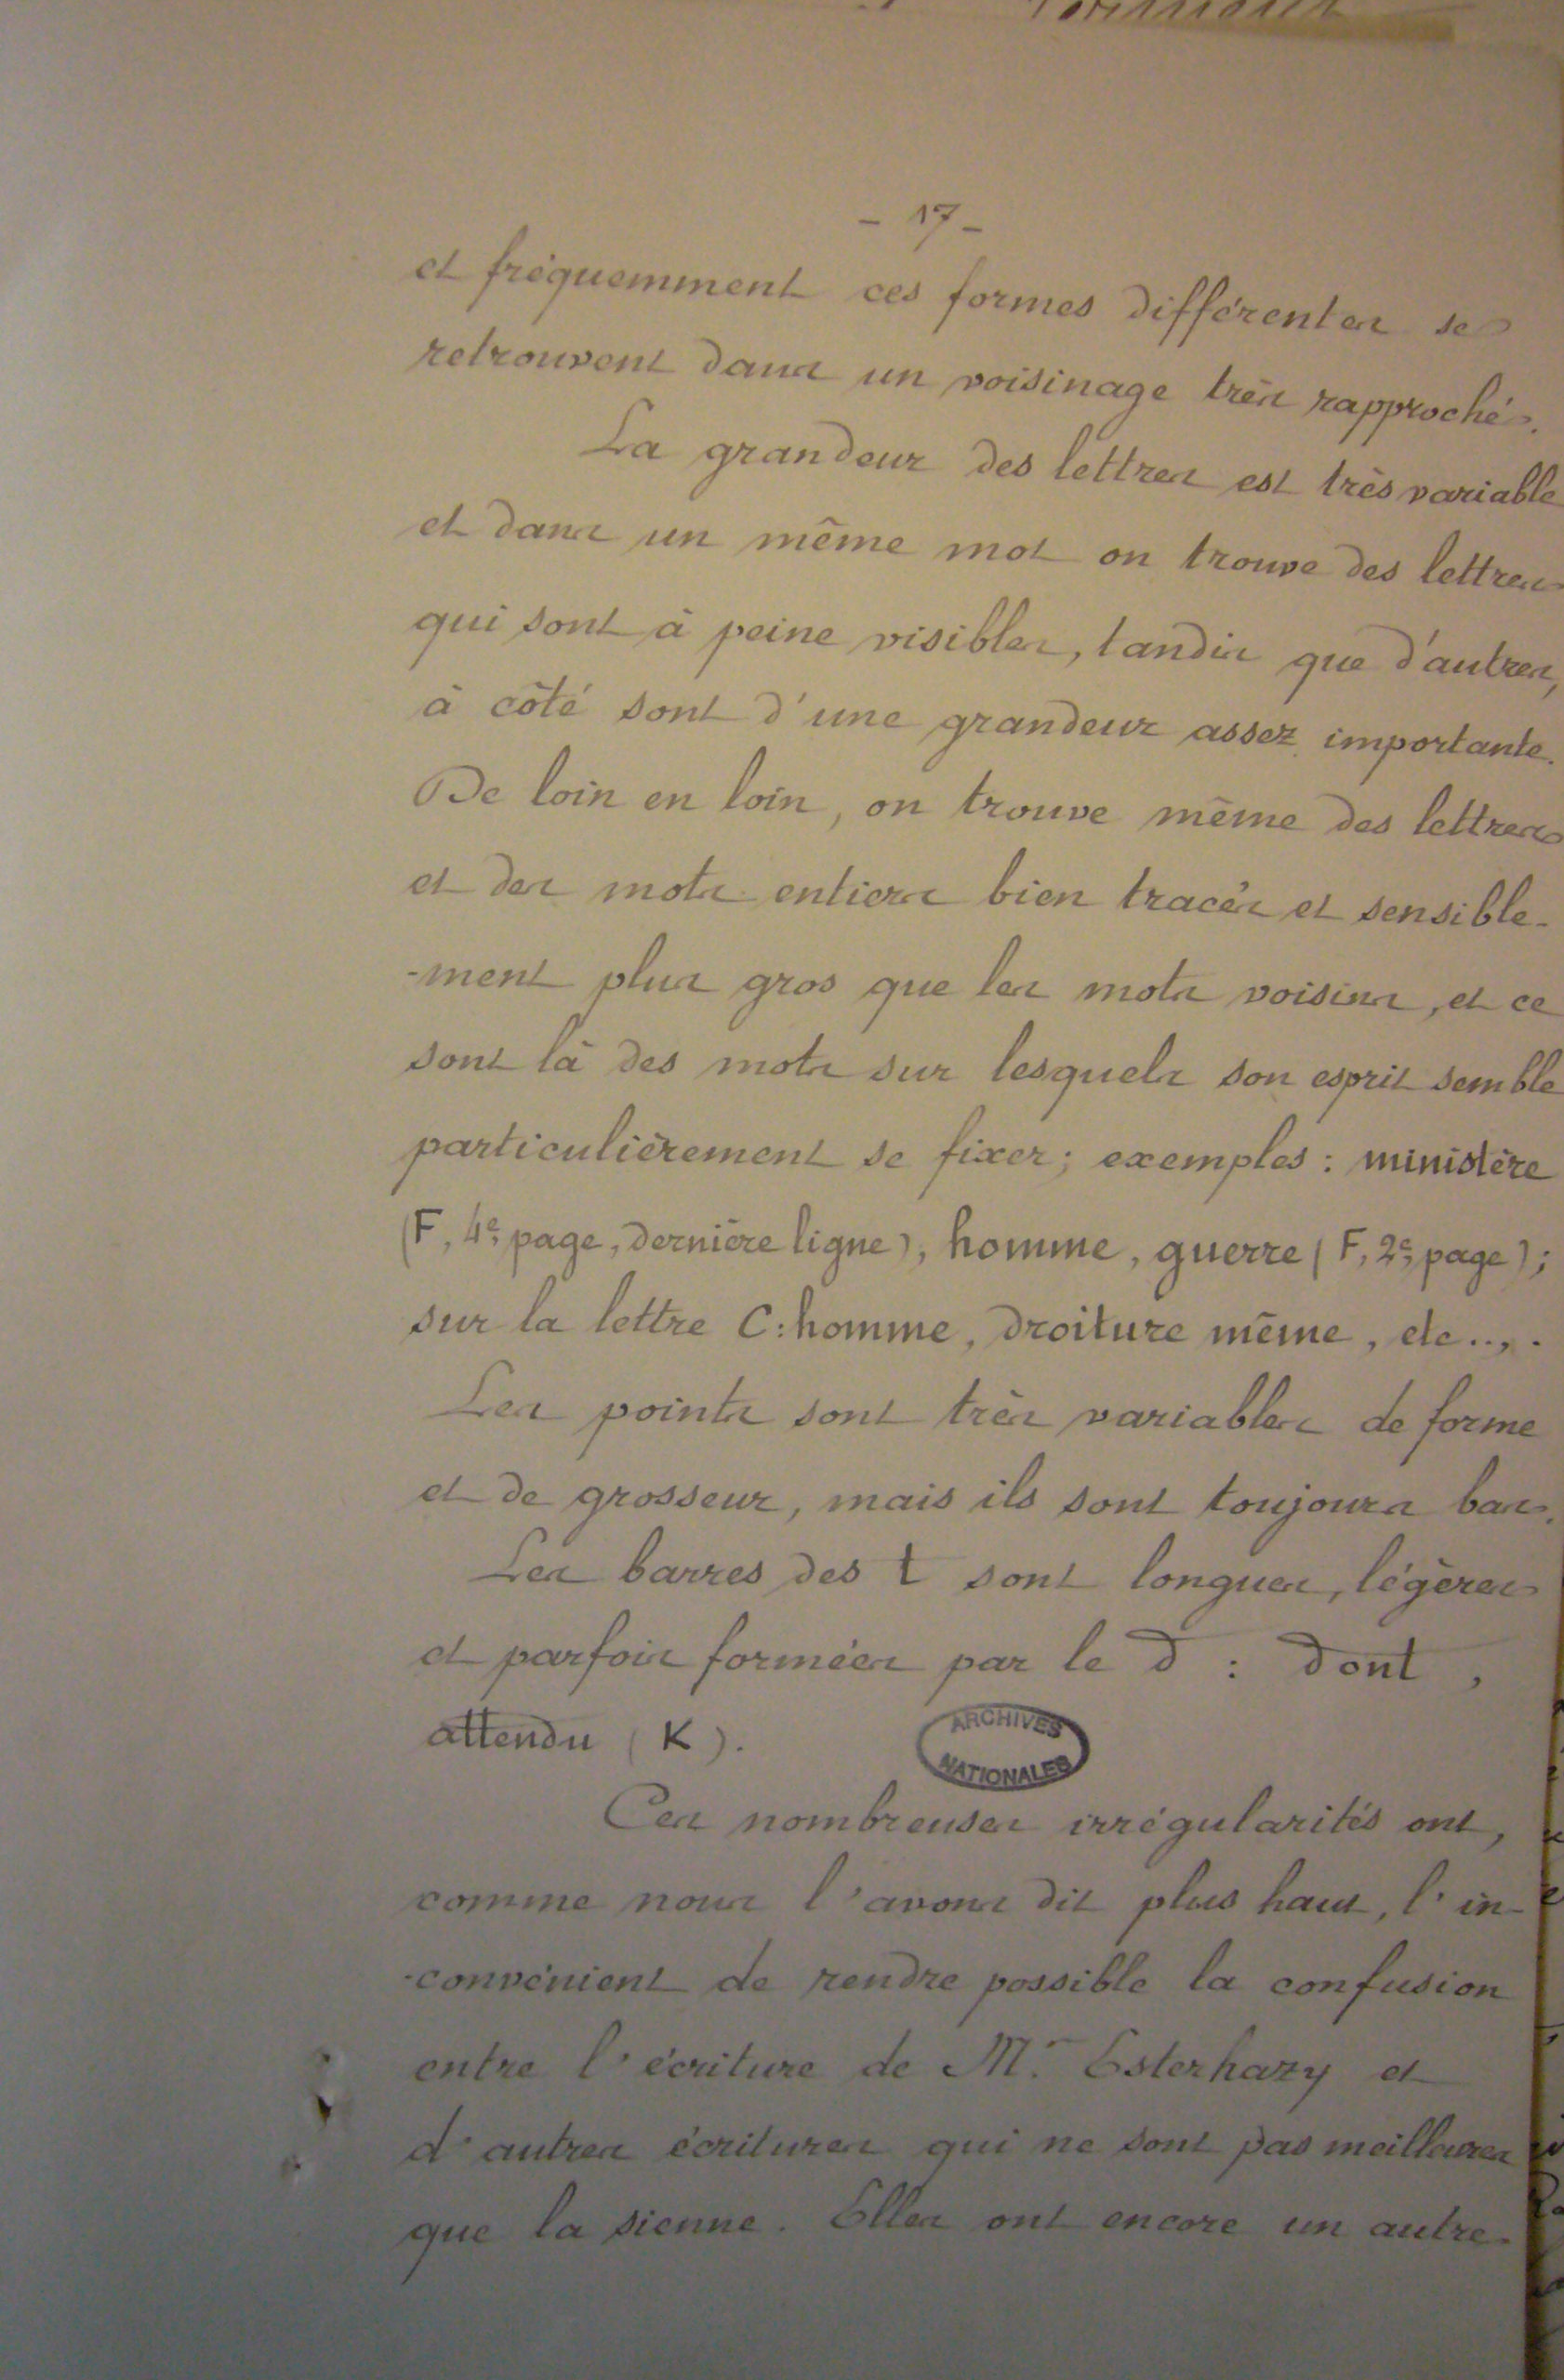 - 17 -
et fréquemment ces formes différentes se
retrouvent dans un voisinage très rapproché.
La grandeur des lettres est très variable
et dans un même mot on trouve des lettres
qui sont à peine visibles, tandis que d'autres,
à côté sont d'une grandeur assez importante.
De loin en loin, on trouve même des lettres
et des mots entiers bien tracés et sensible-
-ment plus gros que les mots voisins, et ce
sont là des mots sur lesquels son esprit semble
particulièrement se fixer; exemples : ministère
(F, 4e page, dernière ligne), homme, guerre (F, 2e page);
sur la lettre C: homme, droiture même, etc...
Les points sont très variables de forme
et de grosseur, mais ils sont toujours bas.
Les barres des t sont longues, légères
et parfois formées par le d : dont,
attendu (K).
ARCHIVES
NATIONALES
Ces nombreuses irrégularités ont,
comme nous l'avons dit plus haut, l'in-
-convénient de rendre possible la confusion
entre l'écriture de Mr Esterhazy et
d'autres écritures qui ne sont pas meilleures
que la sienne. Elles ont encore un autre